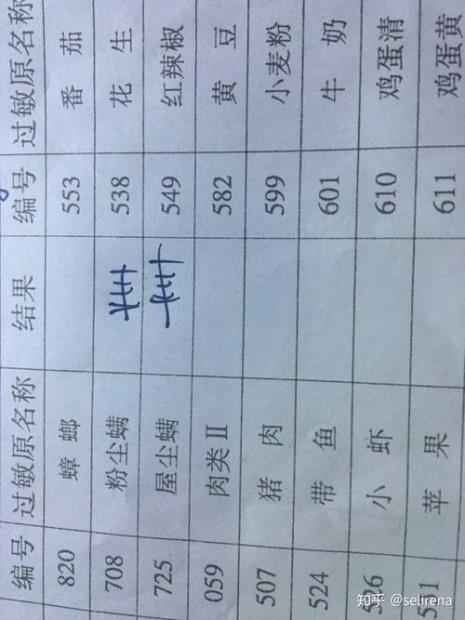 编号 过敏原名称 结果 编号 过敏原名称
820 蟑螂 553 番茄
708 粉尘螨 538 花生
725 屋尘螨 549 红辣椒
059 肉类Ⅱ 582 黄豆
507 猪肉 599 小麦粉
524 带鱼 601 牛奶
小虾 610 鸡蛋清
苹果 611 鸡蛋黄
知乎 @selirena